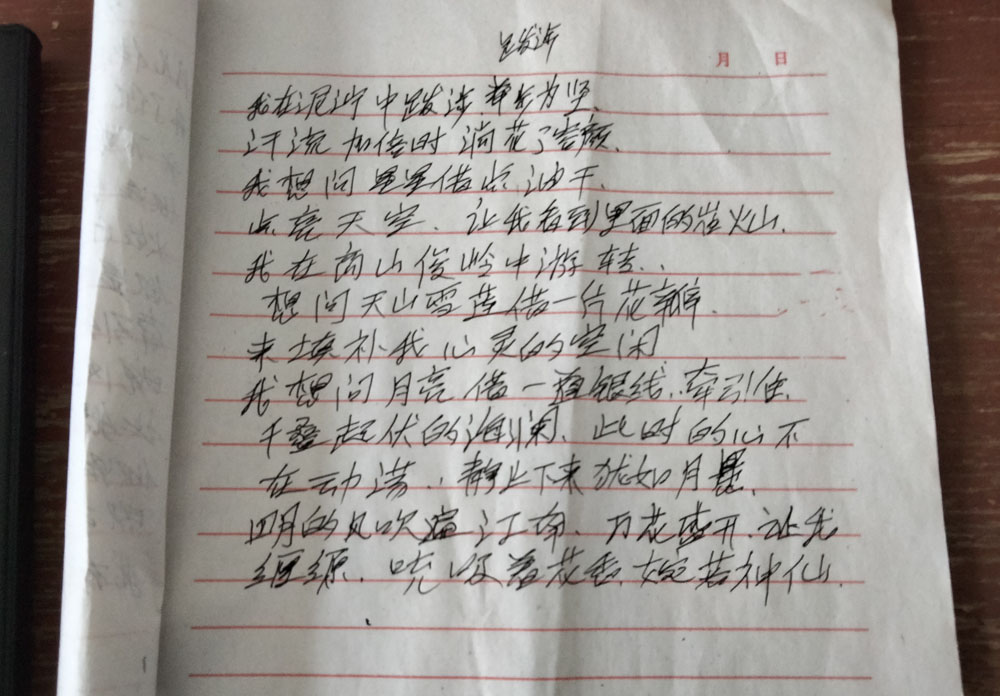 跋涉
月 日
我在泥泞中跋涉 艰为
汗流加倍时 淌花了容颜.
我想问星星借点油干.
点亮天空. 让我看到里面的岩火山.
我在高山俊岭中游转..
想问天山雪莲借一片花瓣.
来填补我心灵的空闲
我想问月亮借一 银线. 牵引住.
千叠起伏的 澜. 此时的心不
在动荡.. 静止下来犹如月
四月的风吹遍江南. 万花盛开. 让我
缠 . 吮吸着花香. 宛若神仙.